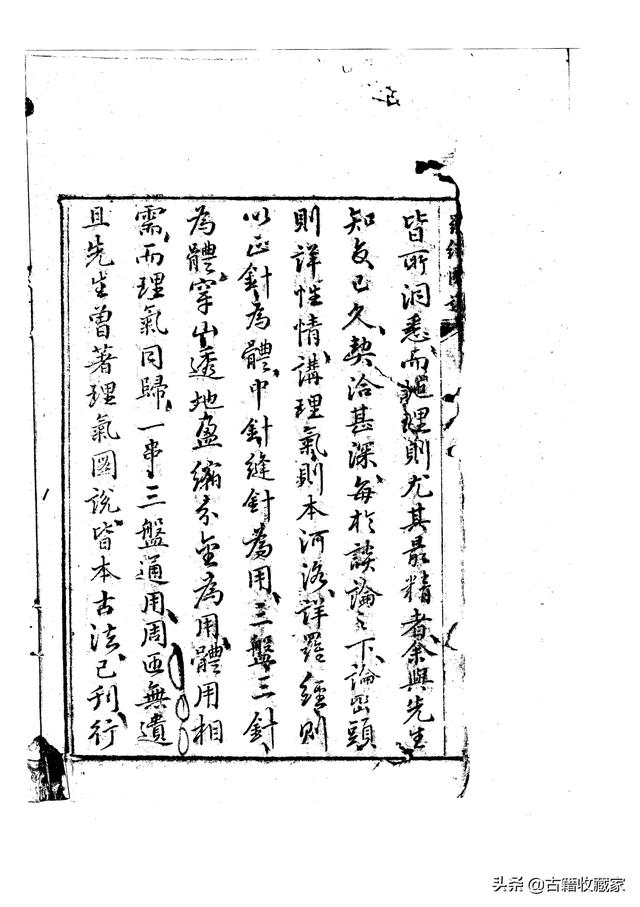 皆所洞悉而地理則尤其最精者余與先生
知交已久契洽甚深每於談論之下論巒頭
則詳性情講理氣則本河洛詳羅經則
以正針為體中針縫針為用三盤三針
為體穿山透地盈縮分金為用體用相
需而理氣同歸一串三盤通用周匝無遺
且先生曾著理氣圖說皆本古法已刊行
头条 @古籍收藏家